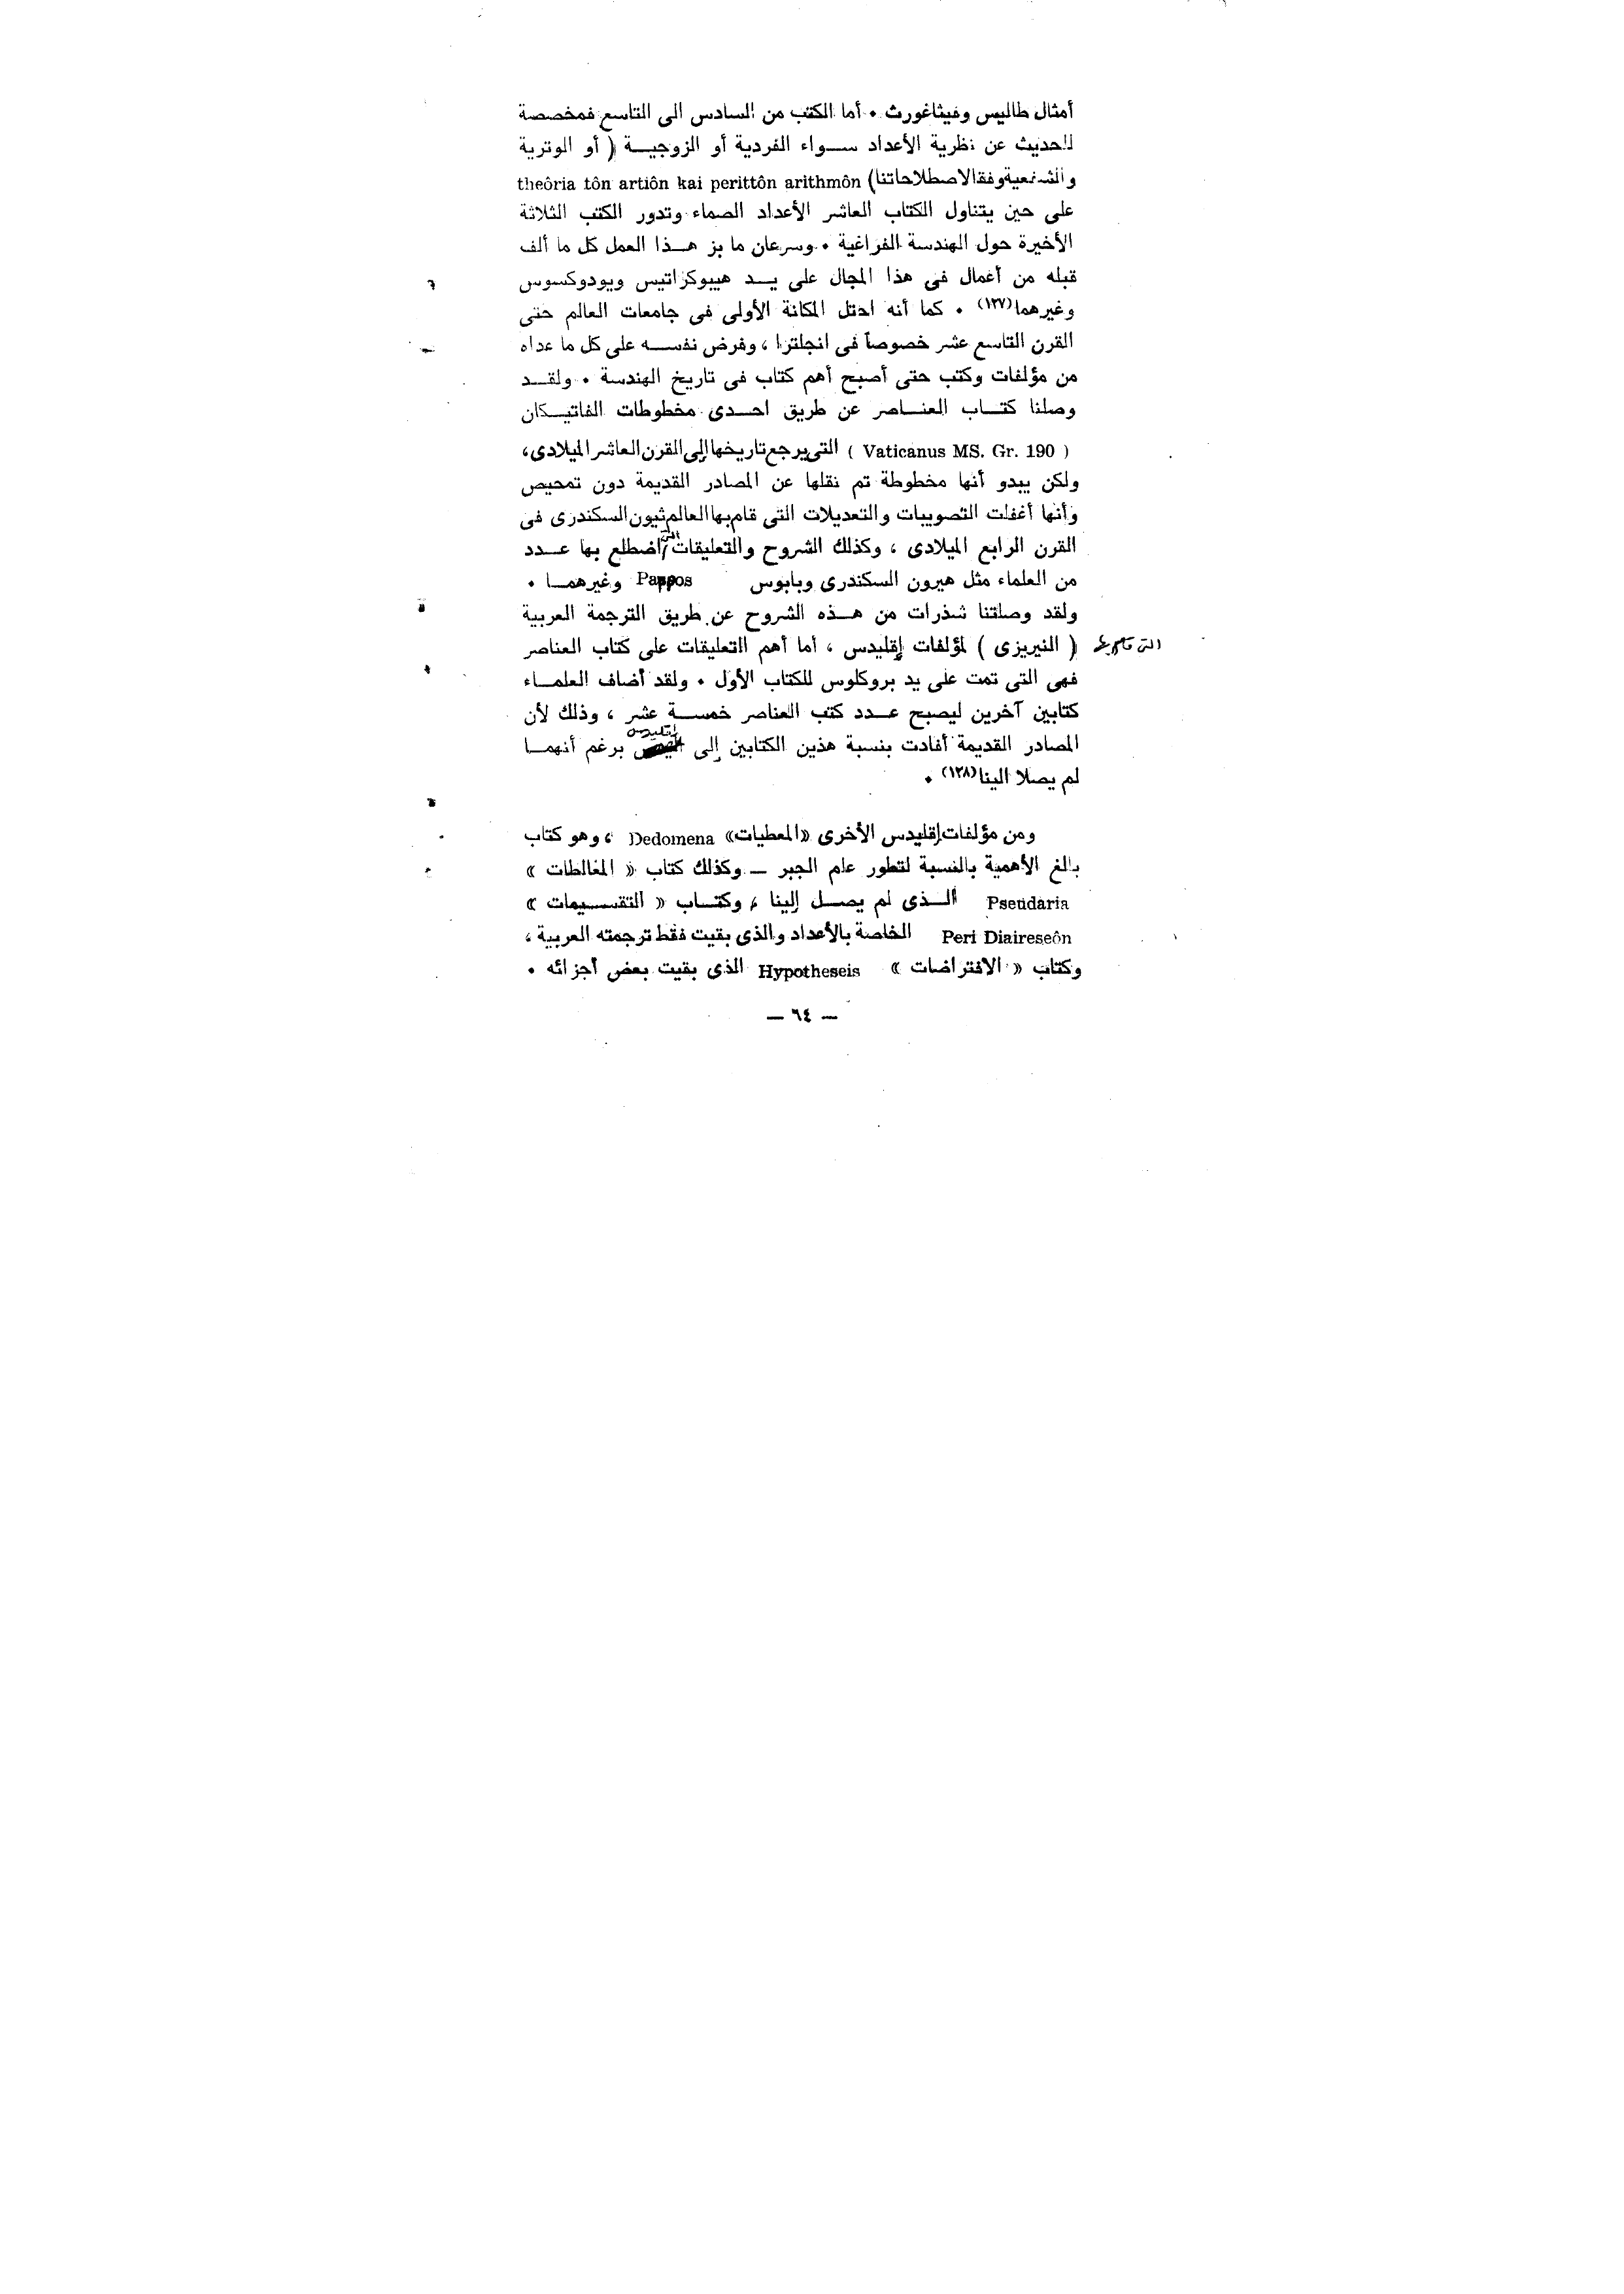 أمثال طاليس وفيثاغورث • أما الكتب من السادس الى التاسع فمخصصة
للحديث عن نظرية الأعداد ســواء الفردية أو الزوجيـــة ( أو الوترية
والشفعية وفقا لاصطلاحاتنا) theôria tôn artiôn kai perittôn arithmôn
على حين يتناول الكتاب العاشر الأعداد الصماء وتدور الكتب الثلاثة
الأخيرة حول الهندسة الفراغية • وسرعان ما بز هــذا العمل كل ما ألف
قبله من أعمال فى هذا المجال على يــد هيبوكراتيس ويودوكسوس
وغيرهما(١٢٧) • كما أنه احتل المكانة الأولى فى جامعات العالم حتى
القرن التاسع عشر خصوصاً فى انجلترا ، وفرض نفســه على كل ما عداه
من مؤلفات وكتب حتى أصبح أهم كتاب فى تاريخ الهندسة • ولقــد
وصلنا كتــاب العنــاصر عن طريق احــدى مخطوطات الفاتيــكان
( Vaticanus MS. Gr. 190 ) التى يرجع تاريخها إلى القرن العاشر الميلادى،
ولكن يبدو أنها مخطوطة تم نقلها عن المصادر القديمة دون تمحيص
وأنها أغفلت التصويبات والتعديلات التى قام بها العالم ثيون السكندرى فى
القرن الرابع الميلادى ، وكذلك الشروح والتعليقات التى اضطلع بها عــدد
من العلماء مثل هيرون السكندرى وبابوس Pappos وغيرهمــا •
ولقد وصلتنا شذرات من هــذه الشروح عن طريق الترجمة العربية
التى قام بها ( النيريزى ) لمؤلفات إقليدس ، أما أهم التعليقات على كتاب العناصر
فهى التى تمت على يد بروكلوس للكتاب الأول • ولقد أضاف العلمــاء
كتابين آخرين ليصبح عــدد كتب العناصر خمســة عشر ، وذلك لأن
المصادر القديمة أفادت بنسبة هذين الكتابين إلى إقليدس برغم أنهمــا
لم يصلا الينا(١٢٨) •
ومن مؤلفات إقليدس الأخرى «المعطيات» Dedomena ، وهو كتاب
بالغ الأهمية بالنسبة لتطور علم الجبر — وكذلك كتاب « المغالطات »
Pseudaria الــذى لم يصــل إلينا ، وكتــاب « التقســيمات »
Peri Diaireseôn الخاصة بالأعداد والذى بقيت فقط ترجمته العربية ،
وكتاب « الافتراضات » Hypotheseis الذى بقيت بعض أجزائه •
— ٦٤ —